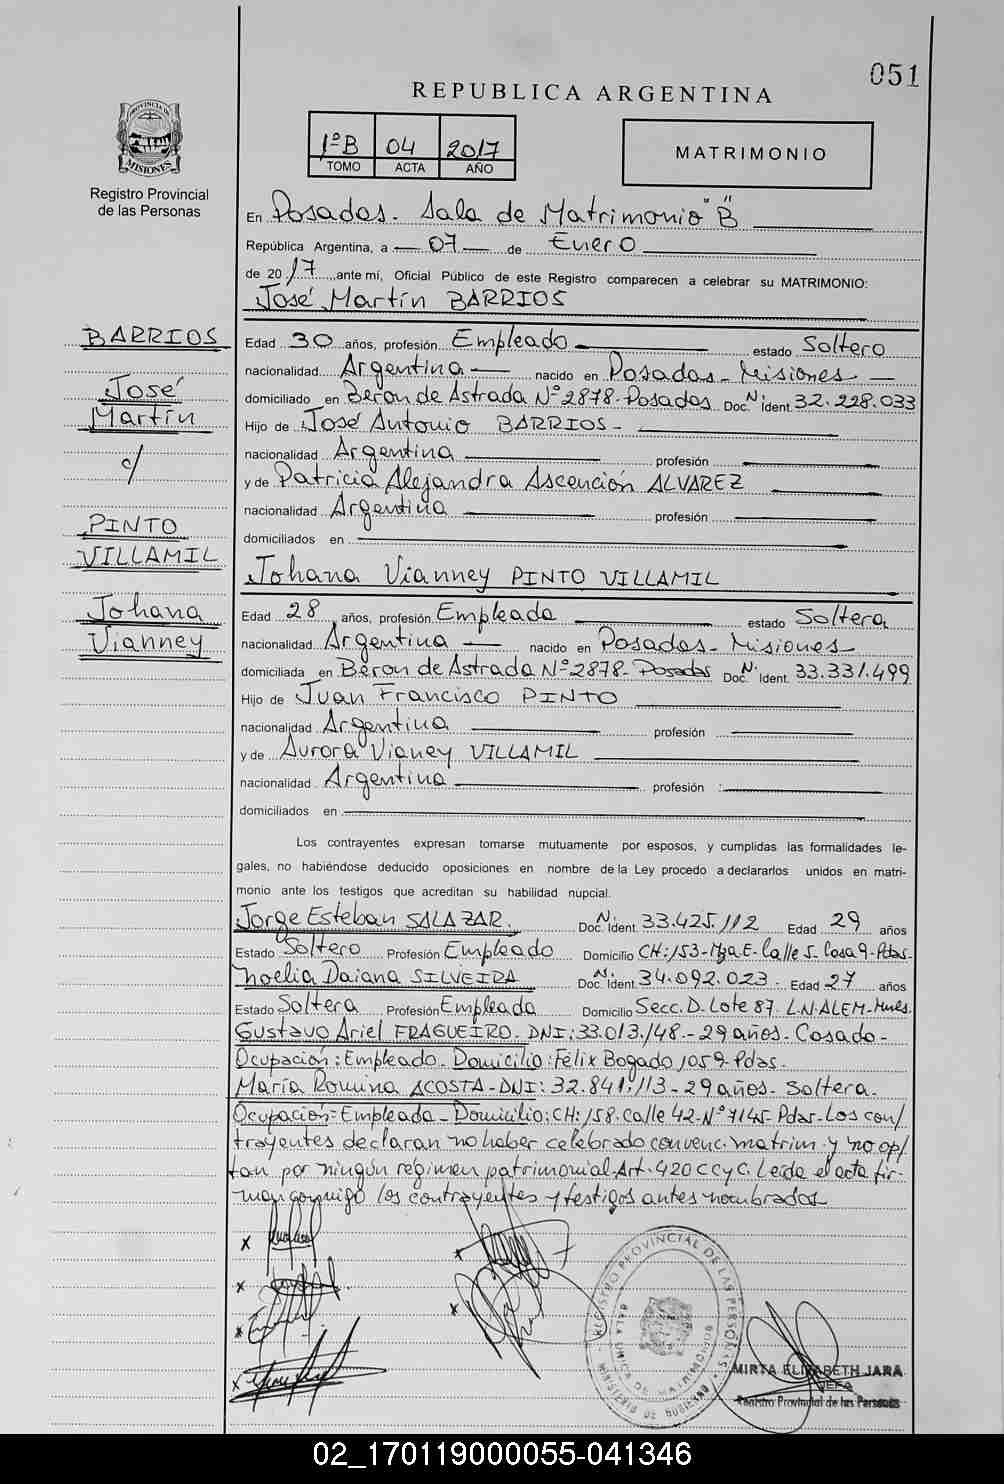 051
REPUBLICA ARGENTINA
PROVINCIA DE
MISIONES
Registro Provincial
de las Personas
1ºB 04 2017
TOMO ACTA AÑO
MATRIMONIO
En Posadas. Sala de Matrimonio "B"
República Argentina, a 07 de Enero
de 2017, ante mí, Oficial Público de este Registro comparecen a celebrar su MATRIMONIO:
José Martín BARRIOS
BARRIOS
José
Martín
c/
PINTO
VILLAMIL
Johana
Vianney
Edad 30 años, profesión Empleado estado Soltero
nacionalidad Argentina nacido en Posadas - Misiones
domiciliado en Beron de Astrada Nº 2878-Posadas Doc. N. Ident. 32.228.033
Hijo de José Antonio BARRIOS-
nacionalidad Argentina profesión
y de Patricia Alejandra Ascención ALVAREZ
nacionalidad Argentina profesión
domiciliados en
Johana Vianney PINTO VILLAMIL
Edad 28 años, profesión Empleada estado Soltera
nacionalidad Argentina nacido en Posadas - Misiones
domiciliada en Beron de Astrada Nº 2878-Posadas Doc. N. Ident. 33.331.499
Hijo de Juan Francisco PINTO
nacionalidad Argentina profesión
y de Aurora Vianey VILLAMIL
nacionalidad Argentina profesión :
domiciliados en
Los contrayentes expresan tomarse mutuamente por esposos, y cumplidas las formalidades le-
gales, no habiéndose deducido oposiciones en nombre de la Ley procedo a declararlos unidos en matri-
monio ante los testigos que acreditan su habilidad nupcial.
Jorge Esteban SALAZAR. Doc. N. Ident. 33.425.112 Edad 29 años
Estado Soltero Profesión Empleado Domicilio CH:153-Mza E-Calle 5-Casa 9-Pdas-
Noelia Daiana SILVEIRA Doc. N. Ident. 34.092.023.- Edad 27 años
Estado Soltera Profesión Empleada Domicilio Secc. D. Lote 87. L.N.ALEM-Mnes.
Gustavo Ariel FRAGUEIRO. DNI: 33.013.148.- 29 años- Casado-
Ocupación: Empleado- Domicilio: Félix Bogado 1059-Pdas-
María Romina ACOSTA-DNI: 32.841.113- 29 años- Soltera-
Ocupación: Empleada- Domicilio: CH:158. Calle 42-Nº 7145-Pdas-Los con/
trayentes declaran no haber celebrado convenc. matrim. y no op/
tan por ningún régimen patrimonial-Art-420 CCyC. Leída el acta fir-
man conmigo los contrayentes y testigos antes nombrados
REGISTRO PROVINCIAL DE LAS PERSONAS
SALA UNICA DE MATRIMONIOS
MINISTERIO DE GOBIERNO
MIRTA ELIZABETH JARA
JEFA
Registro Provincial de las Personas
02_170119000055-041346